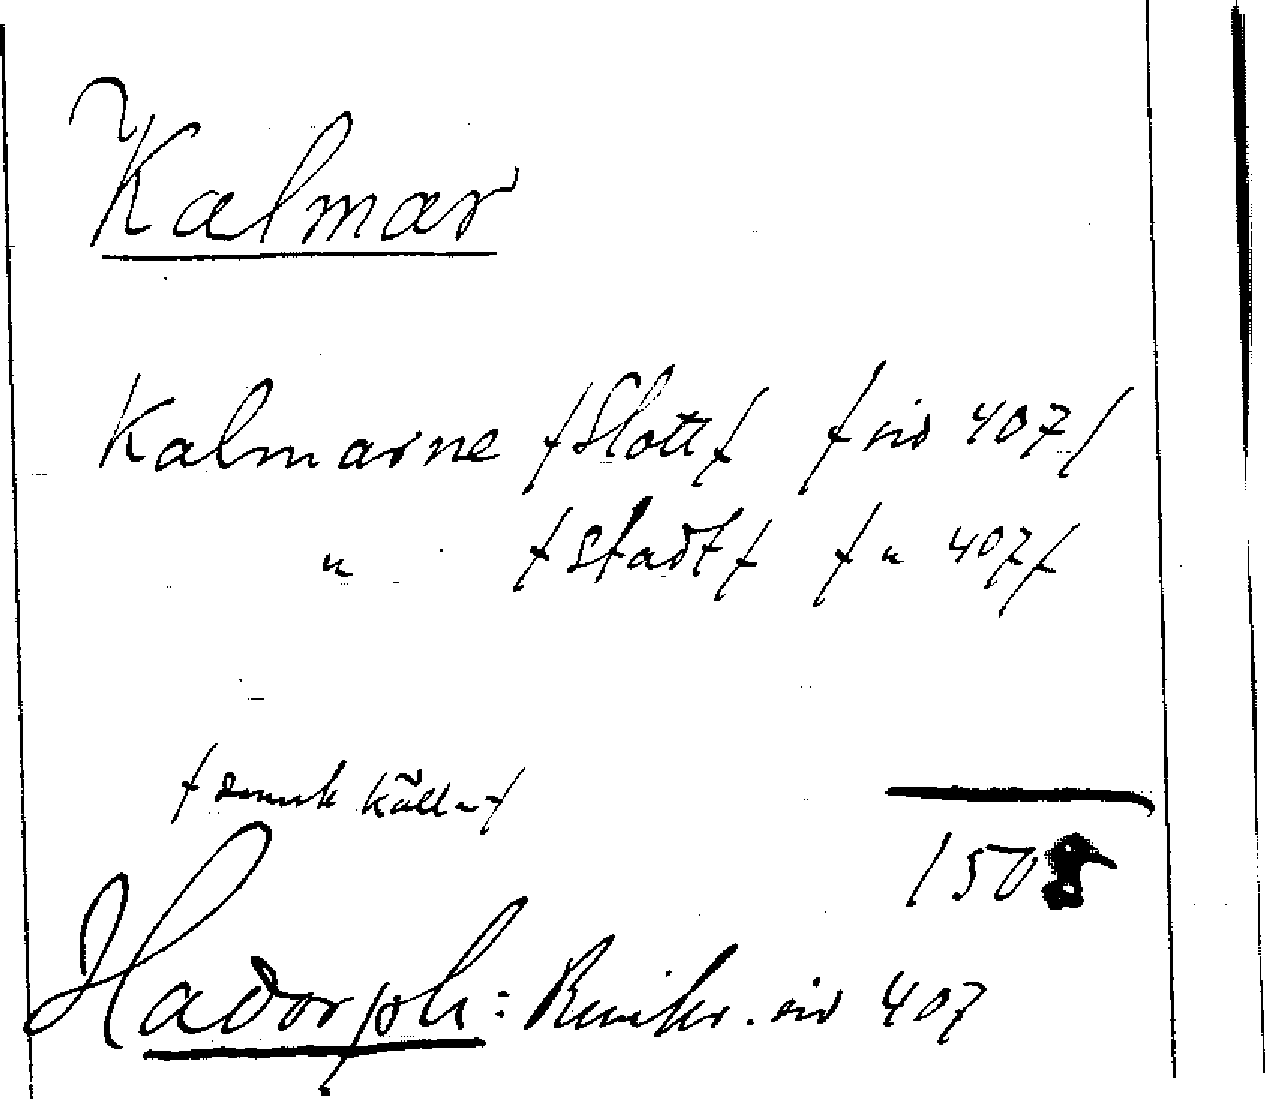 Kalmar
Kalmarne /Slott/ /sid 407/
" /Stadt/ / " 407/
/svensk källa/
1505
Hadorph: Rimkr. sid 407